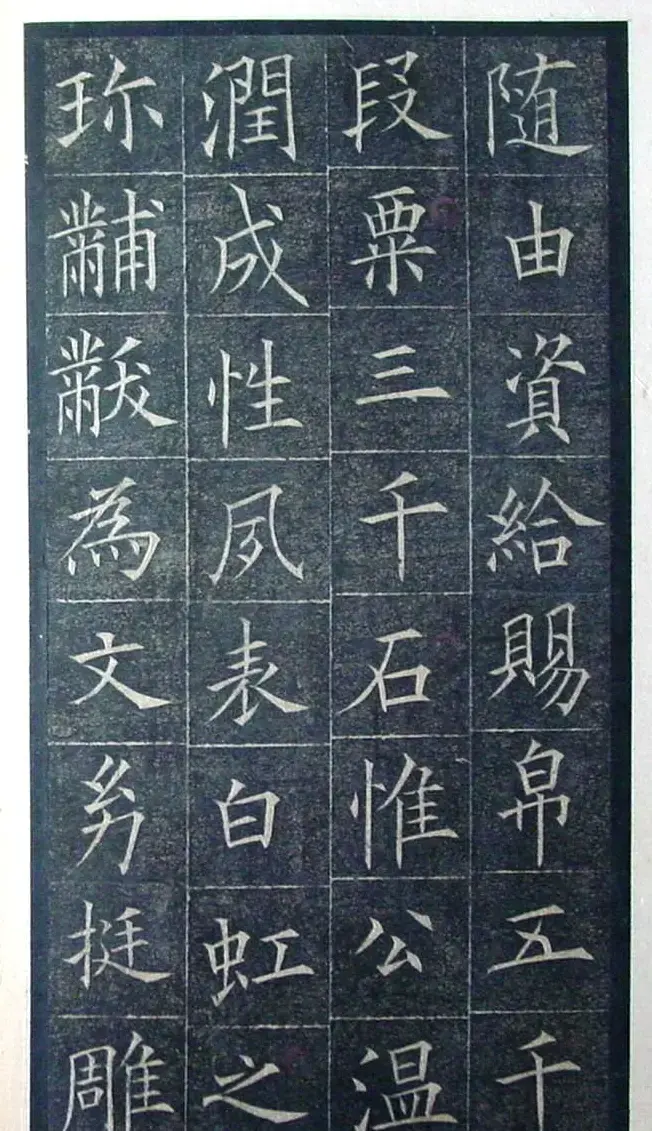 随由資給賜帛五千
段粟三千石惟公温
潤成性夙表白虹之
珎黼黻為文幼挺雕